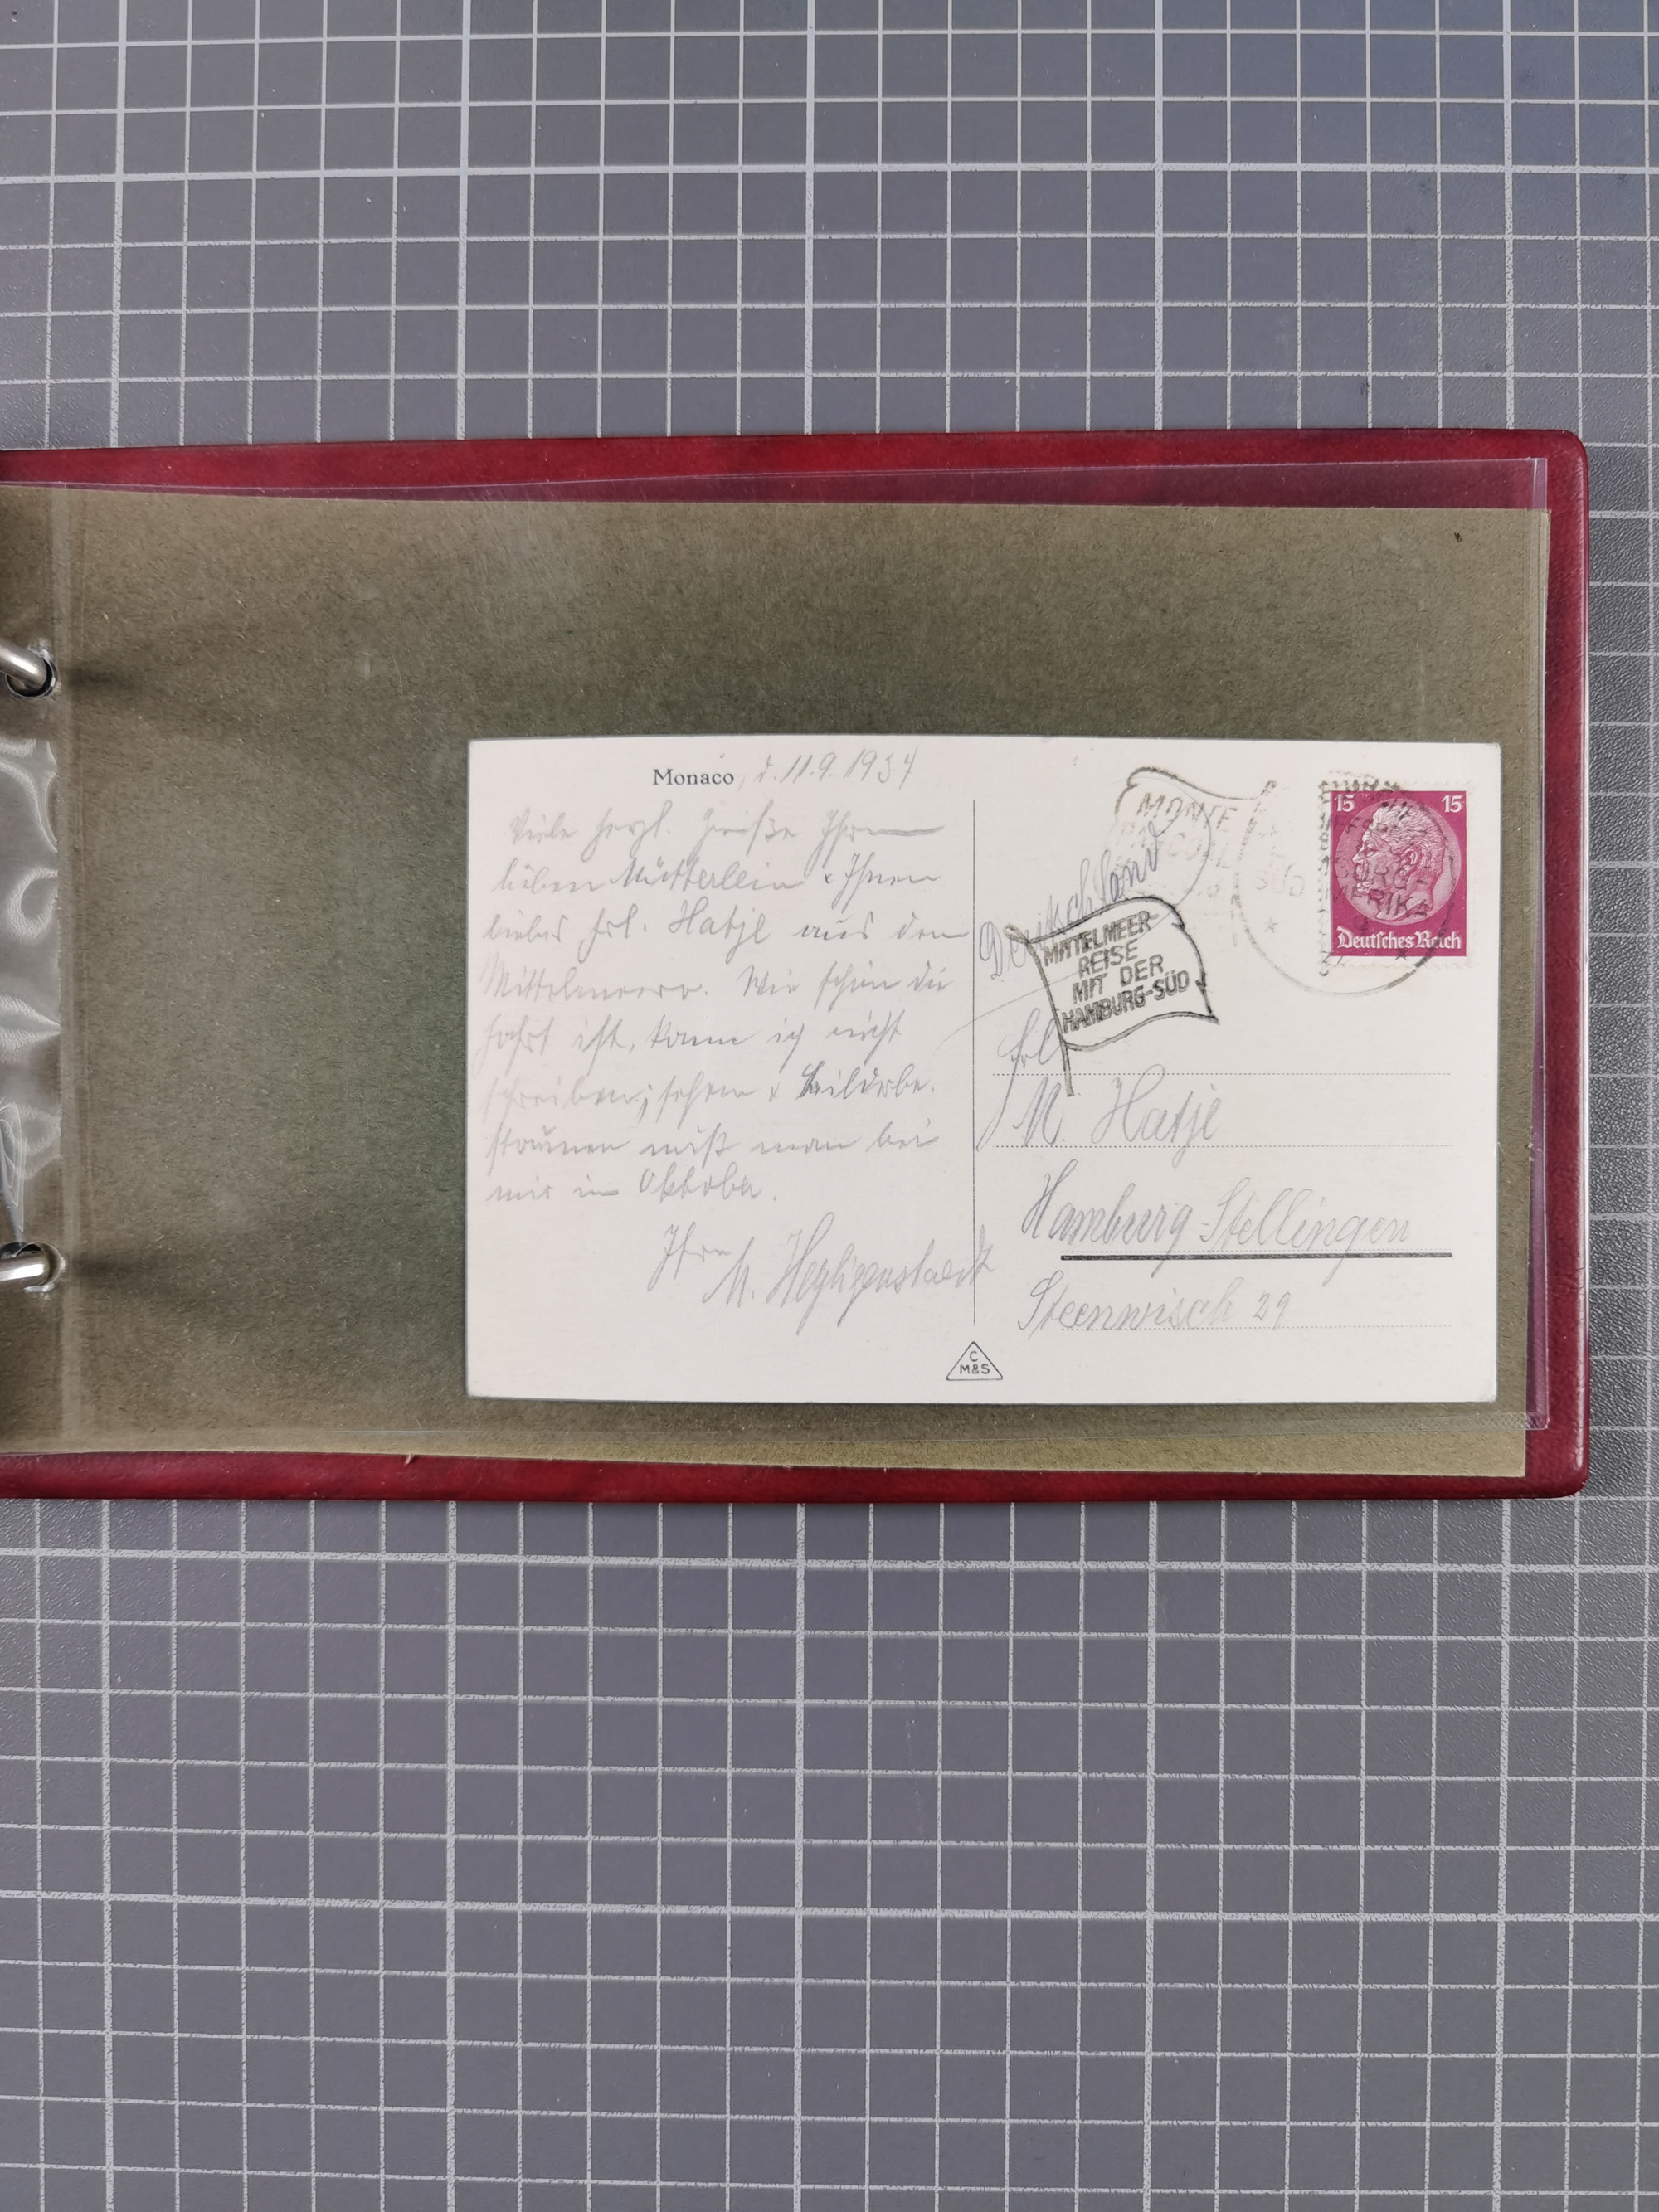 Monaco, d. 11.9.1934
Viele herzl. Grüße Ihrem
lieben Mütterlein & Ihnen
liebes Frl. Hatje aus dem
Mittelmeer. Wie schön die
Fahrt ist, kann ich nicht
schreiben; sehen & Bilder be-
staunen muß man bei
mir im Oktober.
Ihre
M. Heyligenstaedt
MONTE
Deutschland
MITTELMEER-
REISE
MIT DER
HAMBURG-SÜD
15 15
AMERIKA
Deutsches Reich
Frl.
M. Hatje
Hamburg-Stellingen
Steenwisch 29
C
M&S